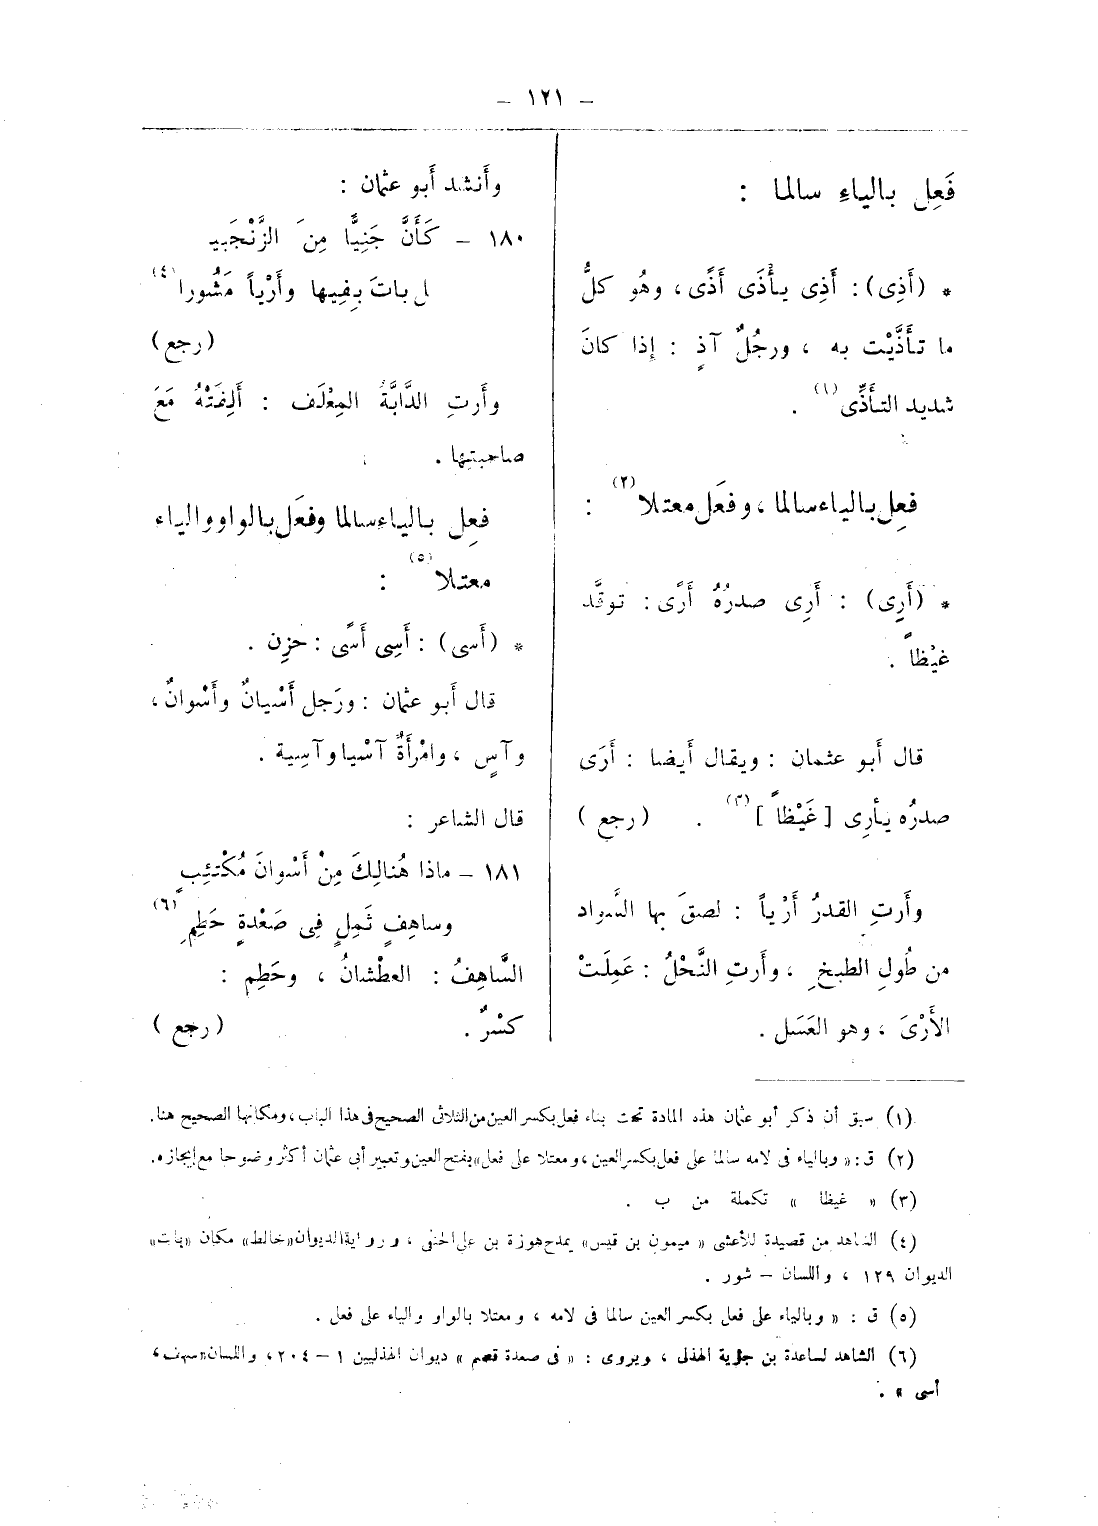 – ١٢١ –
فَعِل بالياءِ سالما :
* (أَذِى) : أَذِى يأذَى أَذًى ، وهُو كلُّ
ما تأَذَّيْت به ، ورجُلٌ آذٍ : إذا كانَ
شديد التأَذِّى (١) .
فعِل بالياء سالما ، وفعَل معتلا (٢) :
* (أَرِى) : أَرِى صدرُهُ أَرًى : توقَّد
غيْظاً .
قال أَبو عثمان : ويقال أَيضا : أَرَى
صدرُه يأرِى [ غَيْظاً ] (٣) . ( رجع )
وأَرتِ القدرُ أَرْياً : لصقَ بها السَّواد
من طُولِ الطبخِ ، وأَرتِ النَّحْلُ : عَمِلَتْ
الأَرْىَ ، وهو العَسَل .
وأَنشد أَبو عثمان :
١٨٠ – كَأَنَّ جَنِيًّا مِنَ الزَّنْجَبِيـ
ل باتَ بِفِيها وأَرْياً مَشُورا (٤)
( رجع )
وأَرتِ الدَّابَّةُ المِعْلَف : أَلِفَتْهُ مَعَ
صاحبتِها .
فعِل بالياء سالما وفعَل بالواو والياء
معتلا (٥) :
* (أَسى) : أَسِى أَسًى : حزِن .
قال أَبو عثمان : ورَجل أَسْيانٌ وأَسْوانٌ ،
وآسٍ ، وامْرأَةٌ آسْيا وآسِية .
قال الشاعر :
١٨١ – ماذا هُنالِكَ مِنْ أَسْوانَ مُكْتئِبٍ
وساهِفٍ ثَمِلٍ فِى صَعْدةٍ حَطِمِ (٦)
السَّاهِفُ : العطْشانُ ، وحَطِم :
كسْرٌ . ( رجع )
(١) سبق أن ذكر أبو عثمان هذه المادة تحت بناء فعل بكسر العين من الثلاثى الصحيح فى هذا الباب ، ومكانها الصحيح هنا .
(٢) ق : « وبالياء فى لامه سالما على فعل بكسر العين ، ومعتلا على فعل » بفتح العين وتعبير أبى عثمان أكثر وضوحا مع إيجازه .
(٣) « غيظا » تكملة من ب .
(٤) الشاهد من قصيدة للأعشى « ميمون بن قيس » يمدح هوزة بن على الحنفى ، ورواية الديوان « خالط » مكان « بات »
الديوان ١٢٩ ، واللسان – شور .
(٥) ق : « وبالياء على فعل بكسر العين سالما فى لامه ، ومعتلا بالواو والياء على فعل .
(٦) الشاهد لساعدة بن جؤية الهذلى ، ويروى : « فى صعدة قصم » ديوان الهذليين ١ – ٢٠٤ ، واللسان « سهف ،
أسى » .